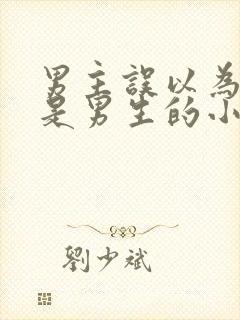 男主誤以為
是男生的小
劉少斌